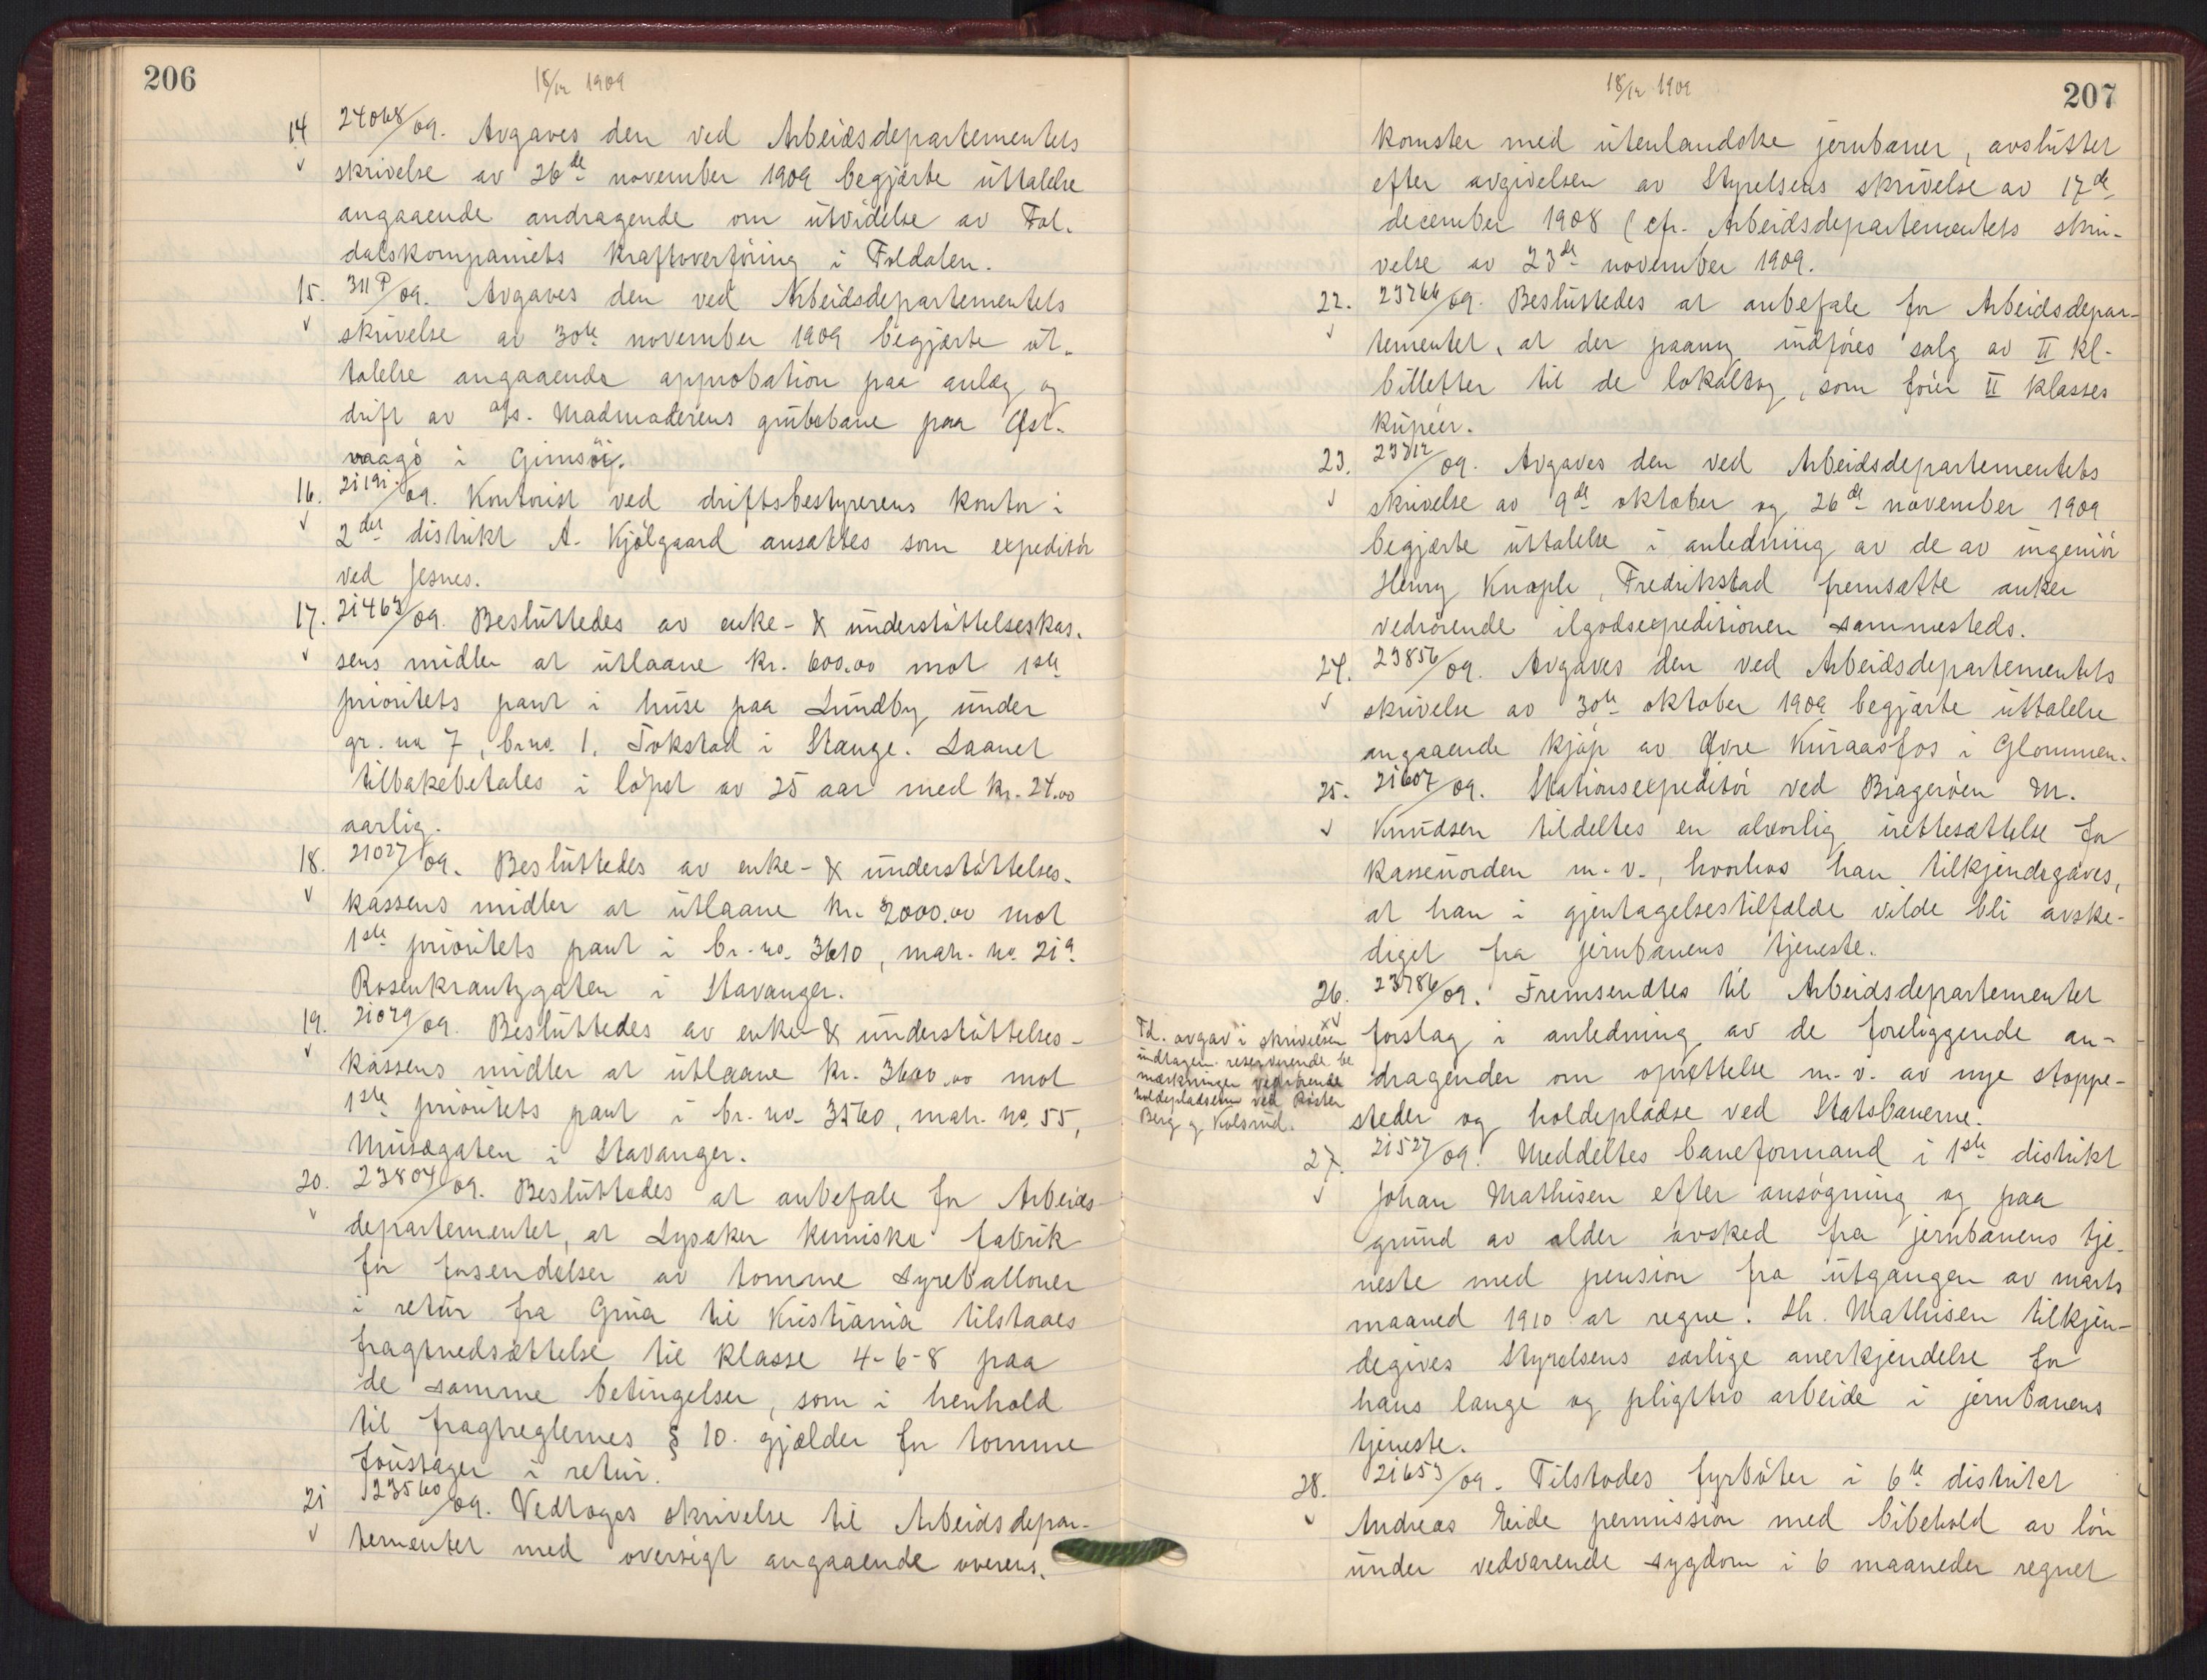 206
18/12 1909
14 24068/09. Avgaves den ved Arbeidsdepartementets
skrivelse av 26de november 1909 begjærte uttalelse
angaaende andragende om utvidelse av Fol-
dalskompaniets kraftoverföring i Foldalen.
15. 311 P/09. Avgaves den ved Arbeidsdepartementets
skrivelse av 30te november 1909 begjærte ut-
talelse angaaende approbation paa anlæg og
drift av a/s. Madmoderens grubebane paa Øst-
vaagö i Gimsöi.
16. 21191/09. Kontorist ved driftsbestyrerens kontor i
2det distrikt A. Kjölgaard ansattes som expeditör
ved Jesnes.
17. 21463/09. Besluttedes av enke- & understöttelseskas-
sens midler at utlaane kr. 600.00 mot 1ste
prioritets pant i huse paa Lundby under
gr. no 7, br.no. 1. Tokstad i Stange. Laanet
tilbakebetales i löpet av 25 aar med kr. 24.00
aarlig.
18. 21027/09. Besluttedes av enke- & understöttelses-
kassens midler at utlaane kr. 2000.00 mot
1ste prioritets pant i br.-no. 3610, matr. no. 21a
Rosenkrantzgaten i Stavanger.
19. 21029/09. Besluttedes av enke- & understöttelses-
kassens midler at utlaane kr. 3600.00 mot
1ste prioritets pant i br. no. 3560, matr. no. 55,
Musægaten i Stavanger.
20. 23804/09. Besluttedes at anbefale for Arbeids-
departementet, at Lysaker kemiske fabrik
for forsendelser av tomme syreballoner
i retur fra Grua til Kristiania tilstaaes
fragtnedsættelse til klasse 4-6-8 paa
de samme betingelser, som i henhold
til fragtreglernes § 10. gjælder for tomme
foustager i retur.
21 23560/09. Vedtoges skrivelse til Arbeidsdepar-
tementet med oversigt angaaende overens-
207
18/12 1909
komster med utenlandske jernbaner, avsluttet
efter avgivelsen av Styrelsens skrivelse av 17de
december 1908 (cfr. Arbeidsdepartementets skri-
velse av 23de november 1909.
22. 23766/09. Besluttedes at anbefale for Arbeidsdepar-
tementet, at der paany indföres salg av II kl-
billetter til de lokaltog, som förer II klasses
kupeer.
23. 23312/09. Avgaves den ved Arbeidsdepartementets
skrivelse av 9de oktober og 26de november 1909
begjærte uttalelse i anledning av de av ingeniör
Henry Knoph, Fredrikstad fremsatte anker
vedrörende ilgodsexpeditionen sammesteds.
24. 23856/09. Avgaves den ved Arbeidsdepartementets
skrivelse av 30te oktober 1909 begjærte uttalelse
angaaende kjöp av Øvre Kuraasfos i Glommen.
25. 21607/09. Stationsexpeditör ved Bragerøen M.
Knudsen tildeltes en alvorlig irettesættelse for
kasseuorden m. v., hvorhos han tilkjendegaves,
at han i gjentagelsestilfælde vilde bli avske-
diget fra jernbanens tjeneste.
26. 23786/09. Fremsendtes til Arbeidsdepartementet
forslag i anledning av de foreliggende an-
dragender om oprettelse m. v. av nye stoppe-
steder og holdepladse ved Statsbanerne.
Td. avgav i skrivelsen
indtagen reserverende be
mærkninger vedrörende
holdepladsene ved
Berg og Kolsrud.
27. 21527/09. Meddeltes baneformand i 1ste distrikt
Johan Mathisen efter ansögning og paa
grund av alder avsked fra jernbanens tje-
neste med pension fra utgangen av marts
maaned 1910 at regne. Hr. Mathisen tilkjen-
degives Styrelsens særlige anerkjendelse for
hans lange og pligttro arbeide i jernbanens
tjeneste.
28. 21653/09. Tilstodes fyrböter i 6te distrikt
Andreas Eide permission med bibehold av lön
under vedvarende sygdom i 6 maaneder regnet